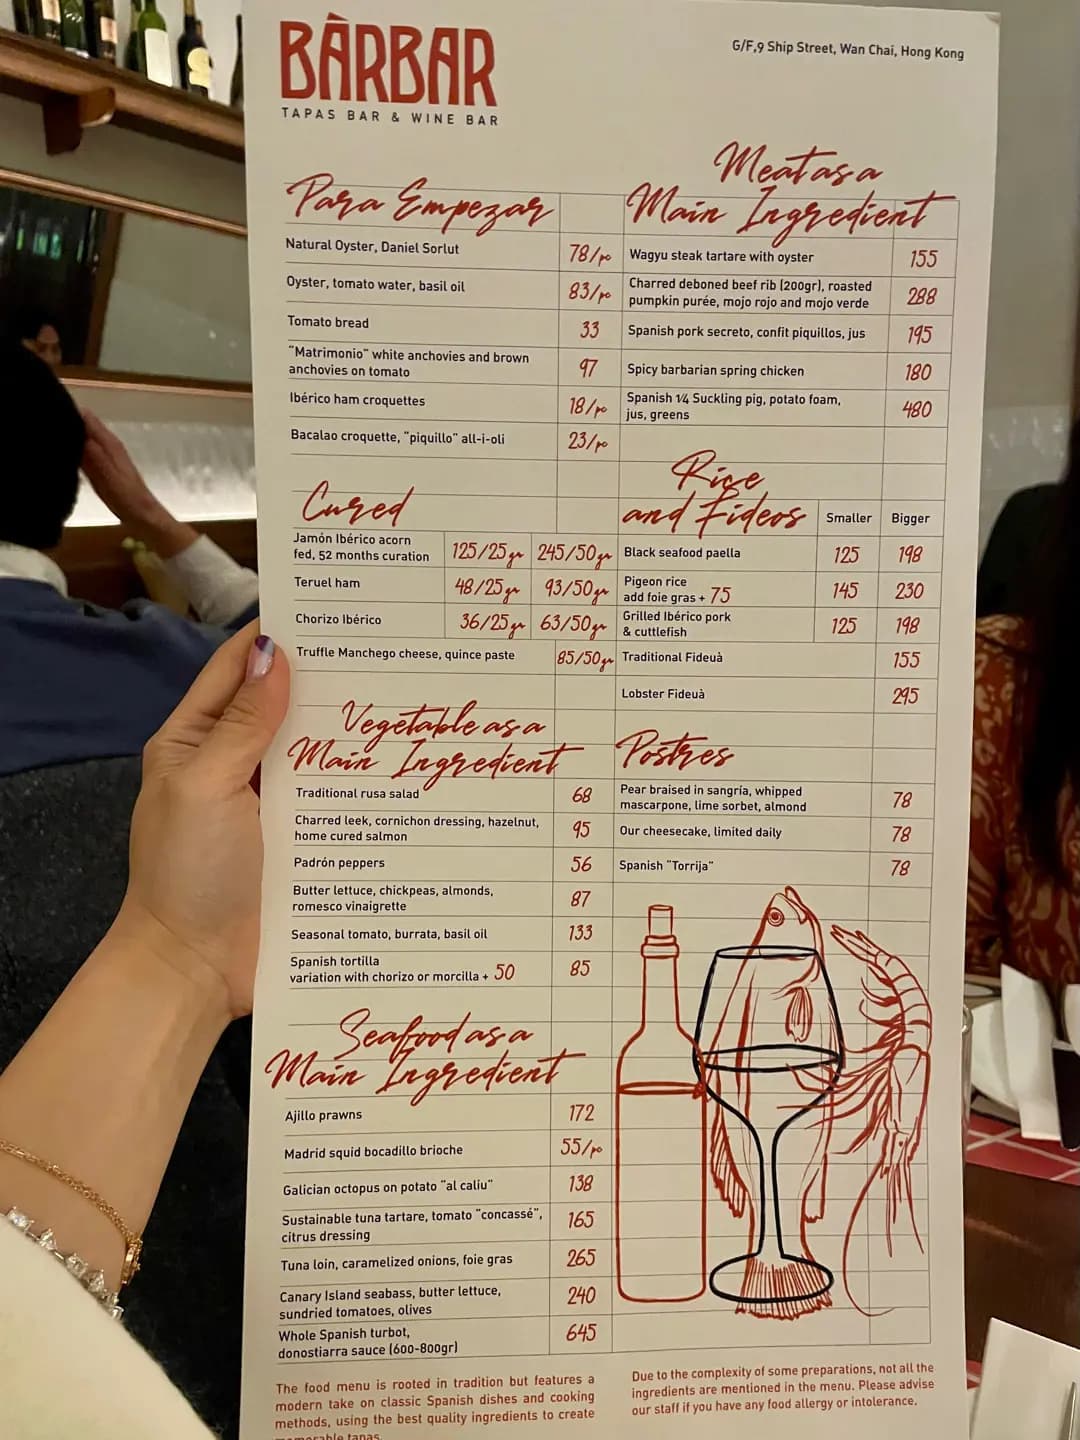 BÀRBAR
TAPAS BAR & WINE BAR
G/F,9 Ship Street, Wan Chai, Hong Kong
Para Empezar
Natural Oyster, Daniel Sorlut 78/pc
Oyster, tomato water, basil oil 83/pc
Tomato bread 33
"Matrimonio" white anchovies and brown
anchovies on tomato 97
Ibérico ham croquettes 18/pc
Bacalao croquette, "piquillo" all-i-oli 23/pc
Cured
Jamón Ibérico acorn
fed, 52 months curation 125/25gr 245/50gr
Teruel ham 48/25gr 93/50gr
Chorizo Ibérico 36/25gr 63/50gr
Truffle Manchego cheese, quince paste 85/50gr
Vegetable as a
Main Ingredient
Traditional rusa salad 68
Charred leek, cornichon dressing, hazelnut,
home cured salmon 95
Padrón peppers 56
Butter lettuce, chickpeas, almonds,
romesco vinaigrette 87
Seasonal tomato, burrata, basil oil 133
Spanish tortilla
variation with chorizo or morcilla + 50 85
Seafood as a
Main Ingredient
Ajillo prawns 172
Madrid squid bocadillo brioche 55/pc
Galician octopus on potato "al caliu" 138
Sustainable tuna tartare, tomato "concassé",
citrus dressing 165
Tuna loin, caramelized onions, foie gras 265
Canary Island seabass, butter lettuce,
sundried tomatoes, olives 240
Whole Spanish turbot,
donostiarra sauce (600-800gr) 645
The food menu is rooted in tradition but features a
modern take on classic Spanish dishes and cooking
methods, using the best quality ingredients to create
memorable tapas.
Meat as a
Main Ingredient
Wagyu steak tartare with oyster 155
Charred deboned beef rib (200gr), roasted
pumpkin purée, mojo rojo and mojo verde 288
Spanish pork secreto, confit piquillos, jus 195
Spicy barbarian spring chicken 180
Spanish 1/4 Suckling pig, potato foam,
jus, greens 480
Rice
and Fideos Smaller Bigger
Black seafood paella 125 198
Pigeon rice
add foie gras + 75 145 230
Grilled Ibérico pork
& cuttlefish 125 198
Traditional Fideuà 155
Lobster Fideuà 295
Postres
Pear braised in sangría, whipped
mascarpone, lime sorbet, almond 78
Our cheesecake, limited daily 78
Spanish "Torrija" 78
Due to the complexity of some preparations, not all the
ingredients are mentioned in the menu. Please advise
our staff if you have any food allergy or intolerance.